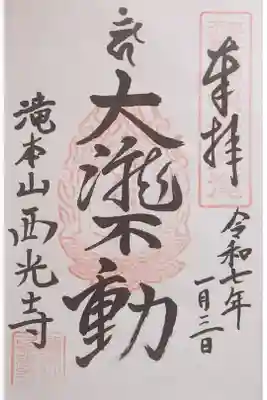 奉拝
令和七年
一月三日
大瀧不動
滝本山西光寺